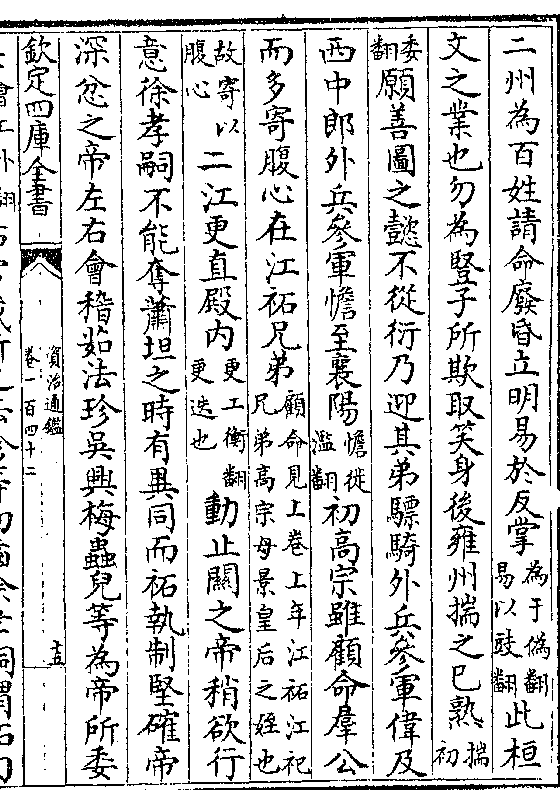 二州為百姓請命廢昏立明易於反掌為于偽翻易以豉翻此桓
文之業也勿為豎子所欺取笑身後雍州揣之已熟揣初
委翻願善圖之懿不從衍乃迎其弟驃騎外兵參軍偉及
西中郎外兵參軍憺至襄陽憺徙濫翻初高宗雖顧命羣公
而多寄腹心在江祏兄弟顧命見上卷上年江祏江祀兄弟高宗母景皇后之姪也
故寄以腹心二江更直殿内更工衡翻更迭也動止關之帝稍欲行
意徐孝嗣不能奪蕭坦之時有異同而祏執制堅確帝
深忿之帝左右會稽茹法珍吳興梅蟲兒等為帝所委
欽定四庫全書
資治通鑑
卷一百四十二
十五